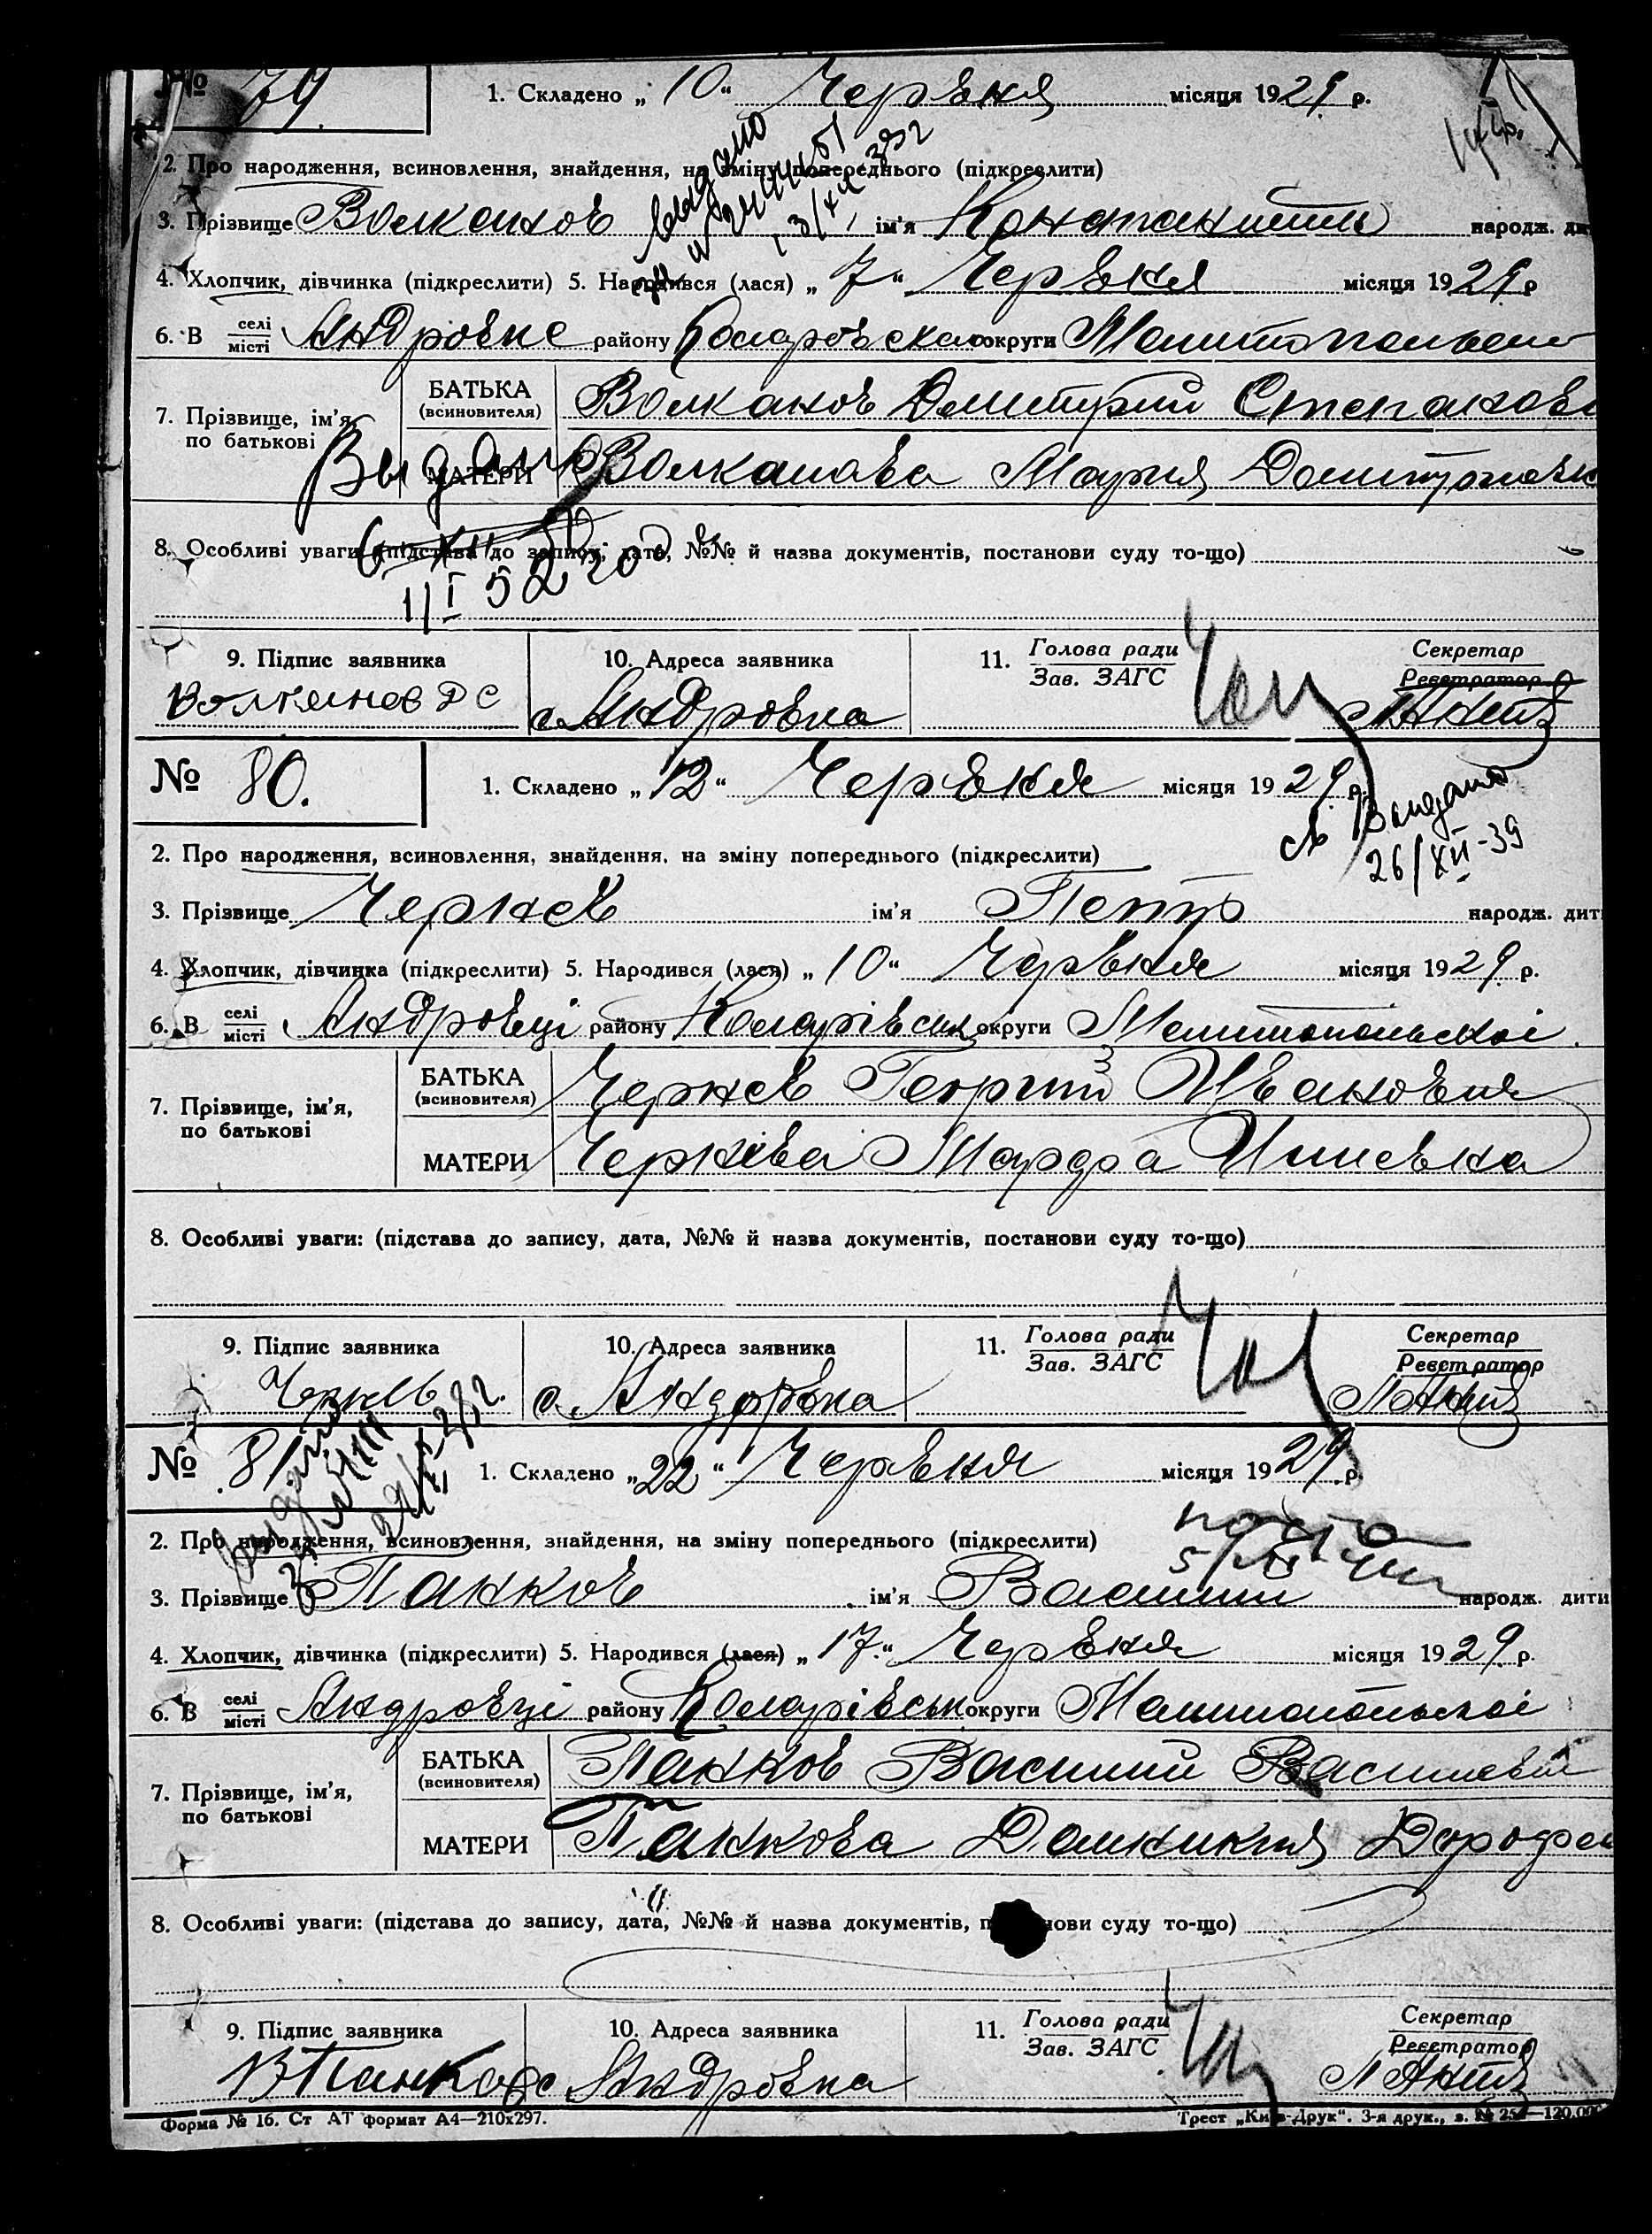 № 79. 1. Складено „ 10 “ Червня місяця 1929 р.
2. Про народження, всиновлення, знайдення, на зміну попереднього (підкреслити)
3. Прізвище Волканов ім’я Константин народж. ди
4. Хлопчик, дівчинка (підкреслити) 5. Народився (лася) „ 7 “ Червня місяця 1929 р
6. В селі місті Андровке району Коларовского округи
7. Прізвище, ім’я, по батькові БАТЬКА (всиновителя) Волканов Дмитрий Степанови
МАТЕРИ Волканова Мария
Выдано
8. Особливі уваги: (підстава до запису, дата, №№ й назва документів, постанови суду то-що)
1/I 52 год
9. Підпис заявника 10. Адреса заявника 11. Голова ради Зав. ЗАГС Секретар Реєстратор
Волканов Д С с. Андровка
№ 80. 1. Складено „ 12 “ Червня місяця 1929 р.
Выдано
26/XII-39
2. Про народження, всиновлення, знайдення, на зміну попереднього (підкреслити)
3. Прізвище Чернев ім’я Петро народж. дит
4. Хлопчик, дівчинка (підкреслити) 5. Народився (лася) „ 10 “ Червня місяця 1929 р.
6. В селі місті Андровці району Коларівськ округи Мелитопольскої.
7. Прізвище, ім’я, по батькові БАТЬКА (всиновителя) Чернев Георгий Иванович
МАТЕРИ Чернева
8. Особливі уваги: (підстава до запису, дата, №№ й назва документів, постанови суду то-що)
9. Підпис заявника 10. Адреса заявника 11. Голова ради Зав. ЗАГС Секретар Реєстратор
Чернев с. Андровка
№ 81 1. Складено „ 22 “ Червня місяця 1929 р.
2. Про народження, всиновлення, знайдення, на зміну попереднього (підкреслити)
3. Прізвище Панков ім’я Василий народж. дити
4. Хлопчик, дівчинка (підкреслити) 5. Народився (лася) „ 17 “ Червня місяця 1929 р.
6. В селі місті Андровці району Коларівськ округи Мелитопольскої
7. Прізвище, ім’я, по батькові БАТЬКА (всиновителя) Панков Василий Василевич
МАТЕРИ Панкова Домникия Дорофе
8. Особливі уваги: (підстава до запису, дата, №№ й назва документів, нови суду то-що)
9. Підпис заявника 10. Адреса заявника 11. Голова ради Зав. ЗАГС Секретар Реєстратор
В Панков с Андровка
Форма № 16. Ст АТ формат А4—210х297. Трест „Київ-Друк“. 3-я друк., з.